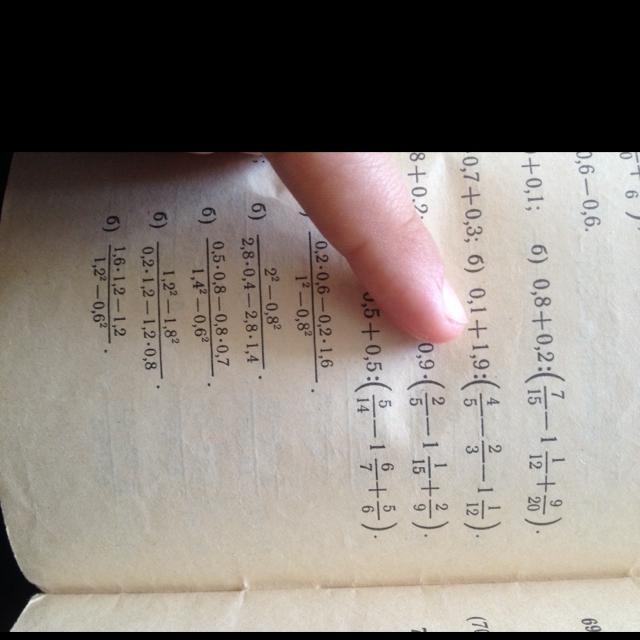 0,6−0,6.
+0,1; б) 0,8+0,2:(7/15−1 1/12+9/20).
0,7+0,3; б) 0,1+1,9:(4/5−2/3−1 1/12).
8+0,2; 0,9:(2/5−1 1/15+2/9).
0,5+0,5:(5/14−1 6/7+5/6).
(0,2·0,6−0,2·1,6)/(1²−0,8²).
б) (2²−0,8²)/(2,8·0,4−2,8·1,4).
б) (0,5·0,8−0,8·0,7)/(1,4²−0,6²).
б) (1,2²−1,8²)/(0,2·1,2−1,2·0,8).
б) (1,6·1,2−1,2)/(1,2²−0,6²).
69
(70